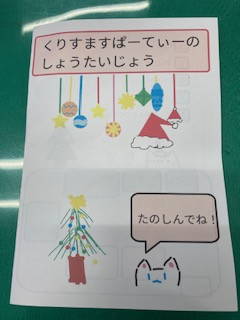 くりすますぱーてぃーの
しょうたいじょう
たのしんでね！